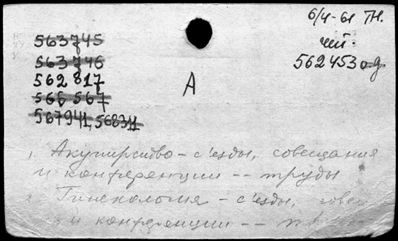 6/4-61 ТН.
563745
563746
562817
566567
567941, 568311
чит.
562453 од
А
1. Акушерство - съезды, совещания
и конференции -- труды
2. Гинекология - съезды, совещ
и конференции --